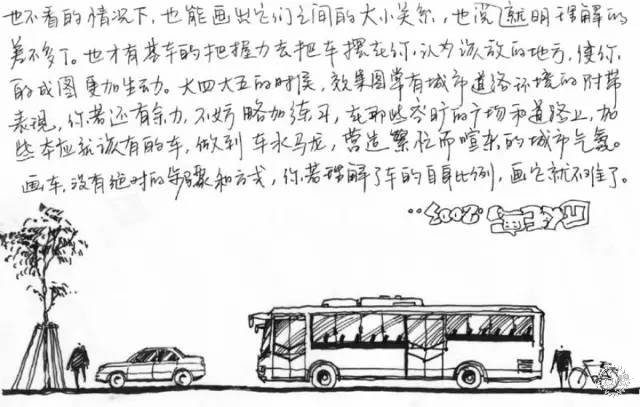 也不看的情况下,也能画出它们之间的大小关系,也说就明理解的
差不多了。也才有基本的把握力去把车摆在你,认为该放的地方,使你
的成图更加生动。大四大五的时候,效果图常有城市道路环境的附带
表现,你若还有余力,不妨略加练习,在那些空旷的广场和道路上,加
些本应就该有的车,做到车水马龙,营造繁忙而喧哗的城市气氛。
画车,没有绝对的步骤和方式,你若理解了车的自身比例,画它就不难了。
2003...